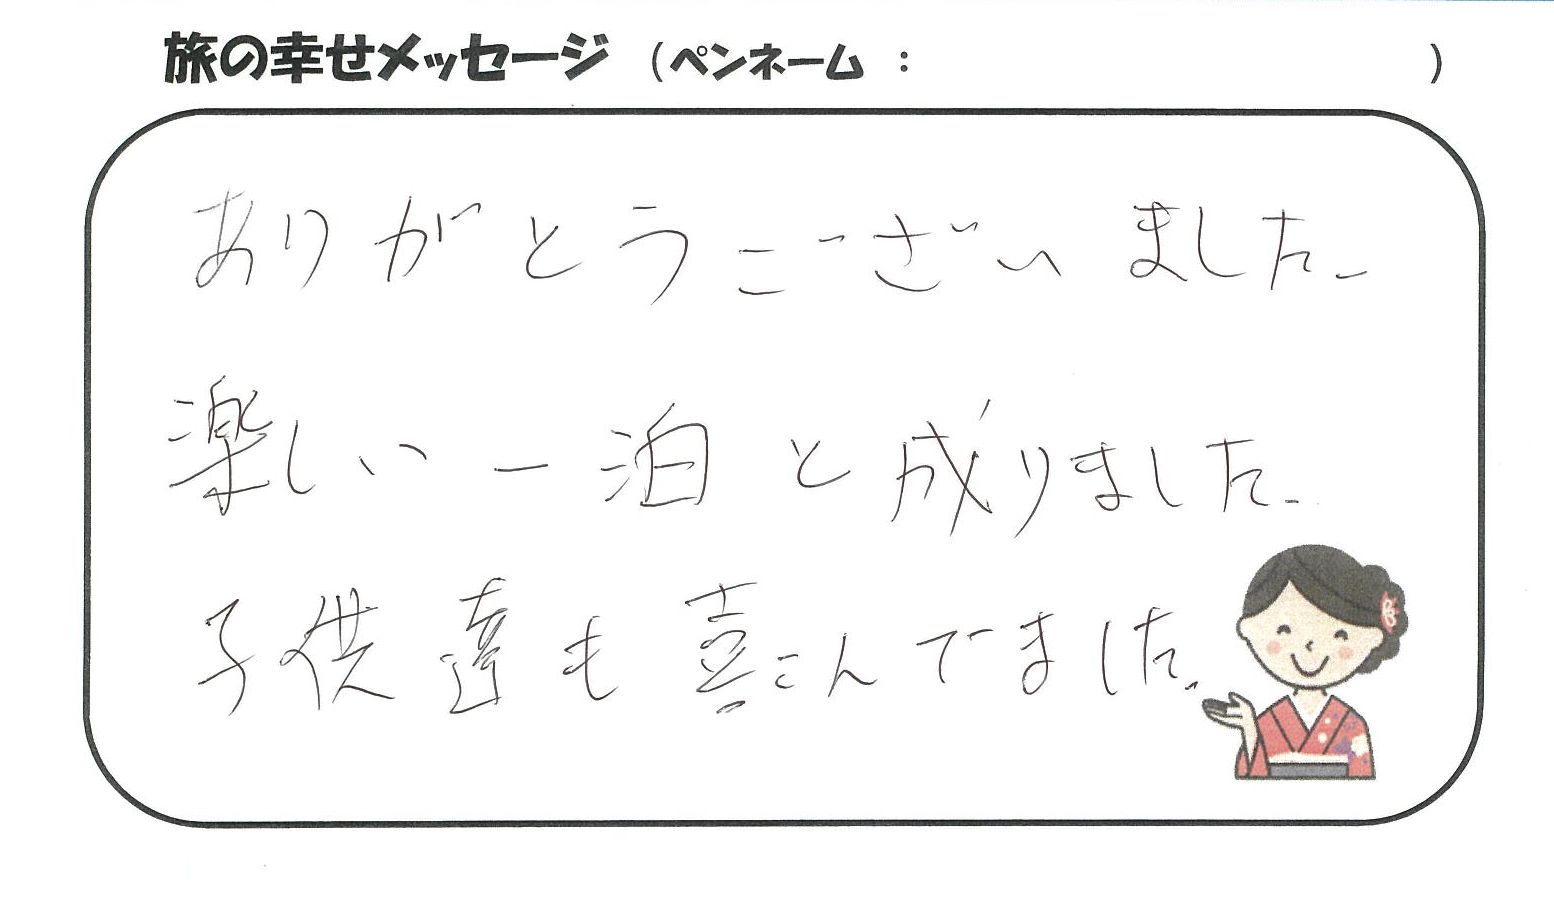 旅の幸せメッセージ (ペンネーム : )
ありがとうございました.
楽しい一泊と成りました.
子供達も喜こんでました.